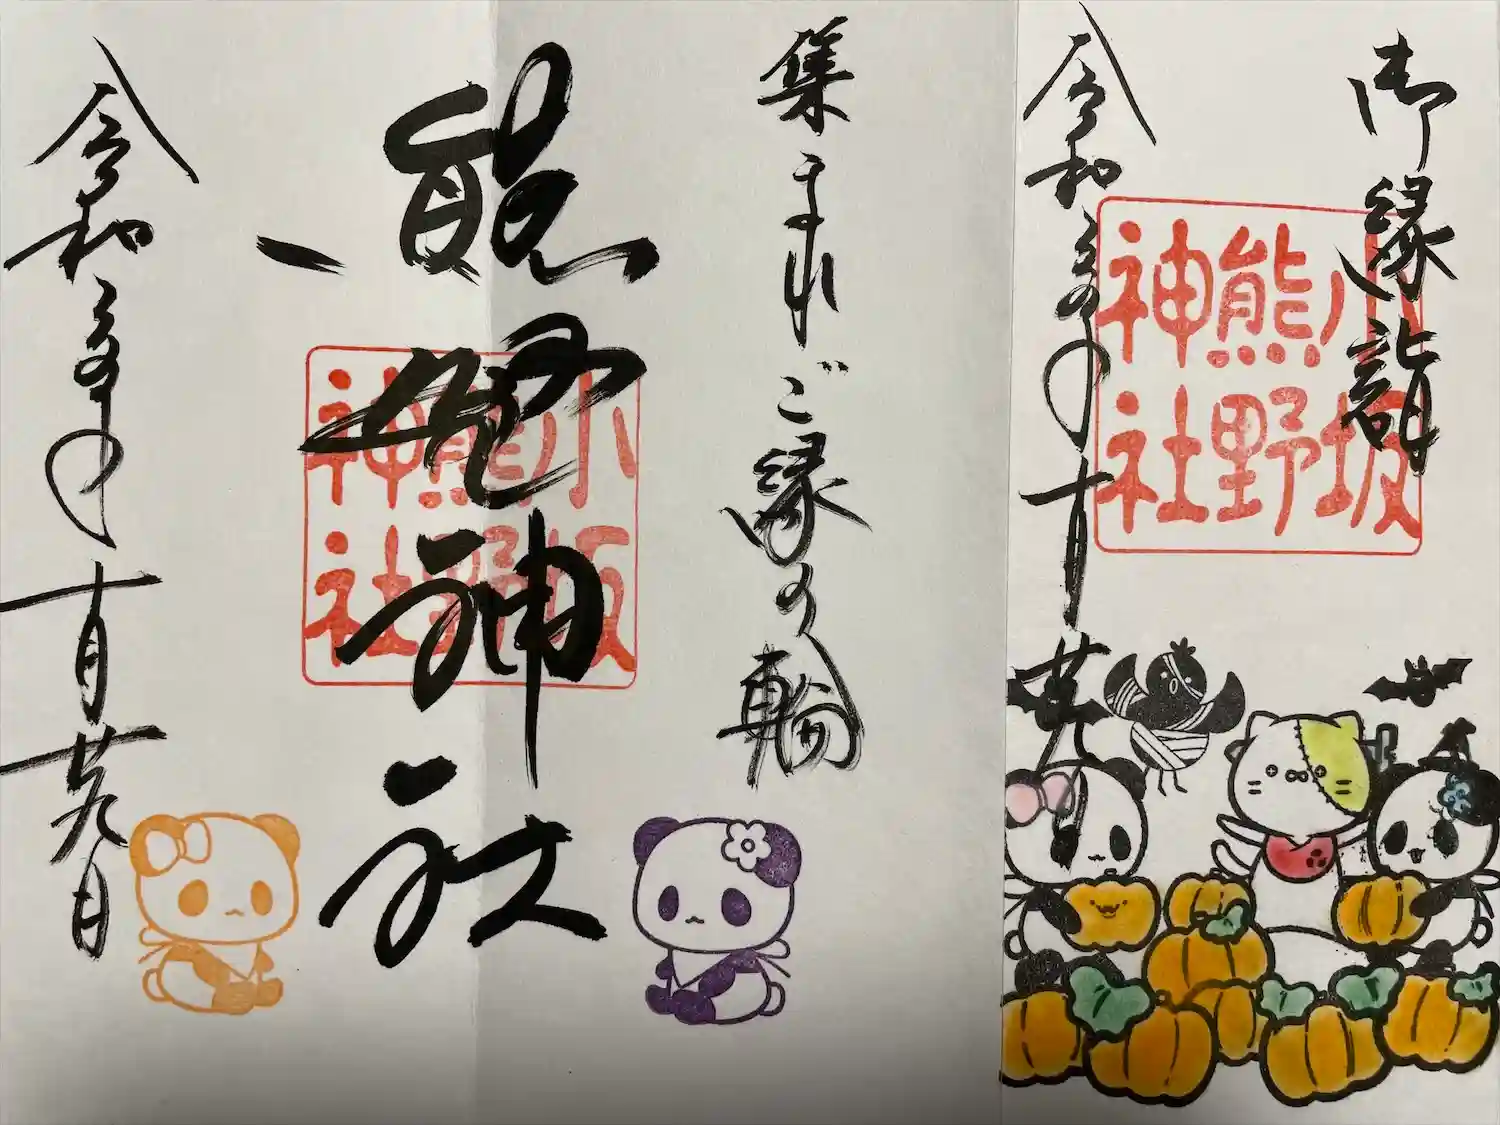 御縁龍
小坂
熊野
神社
令和六年十月廿九日
集まれご縁の輪
熊野神社
小坂
熊野
神社
令和六年十月廿九日